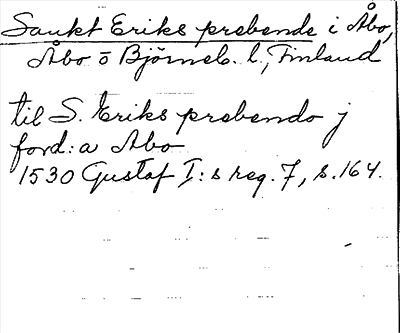 Sankt Eriks prebende i Åbo,
Åbo o Björneb. l., Finland
til S. Eriks prebendo j
ford: a Abo
1530 Gustaf I:s reg. 7, s. 164.